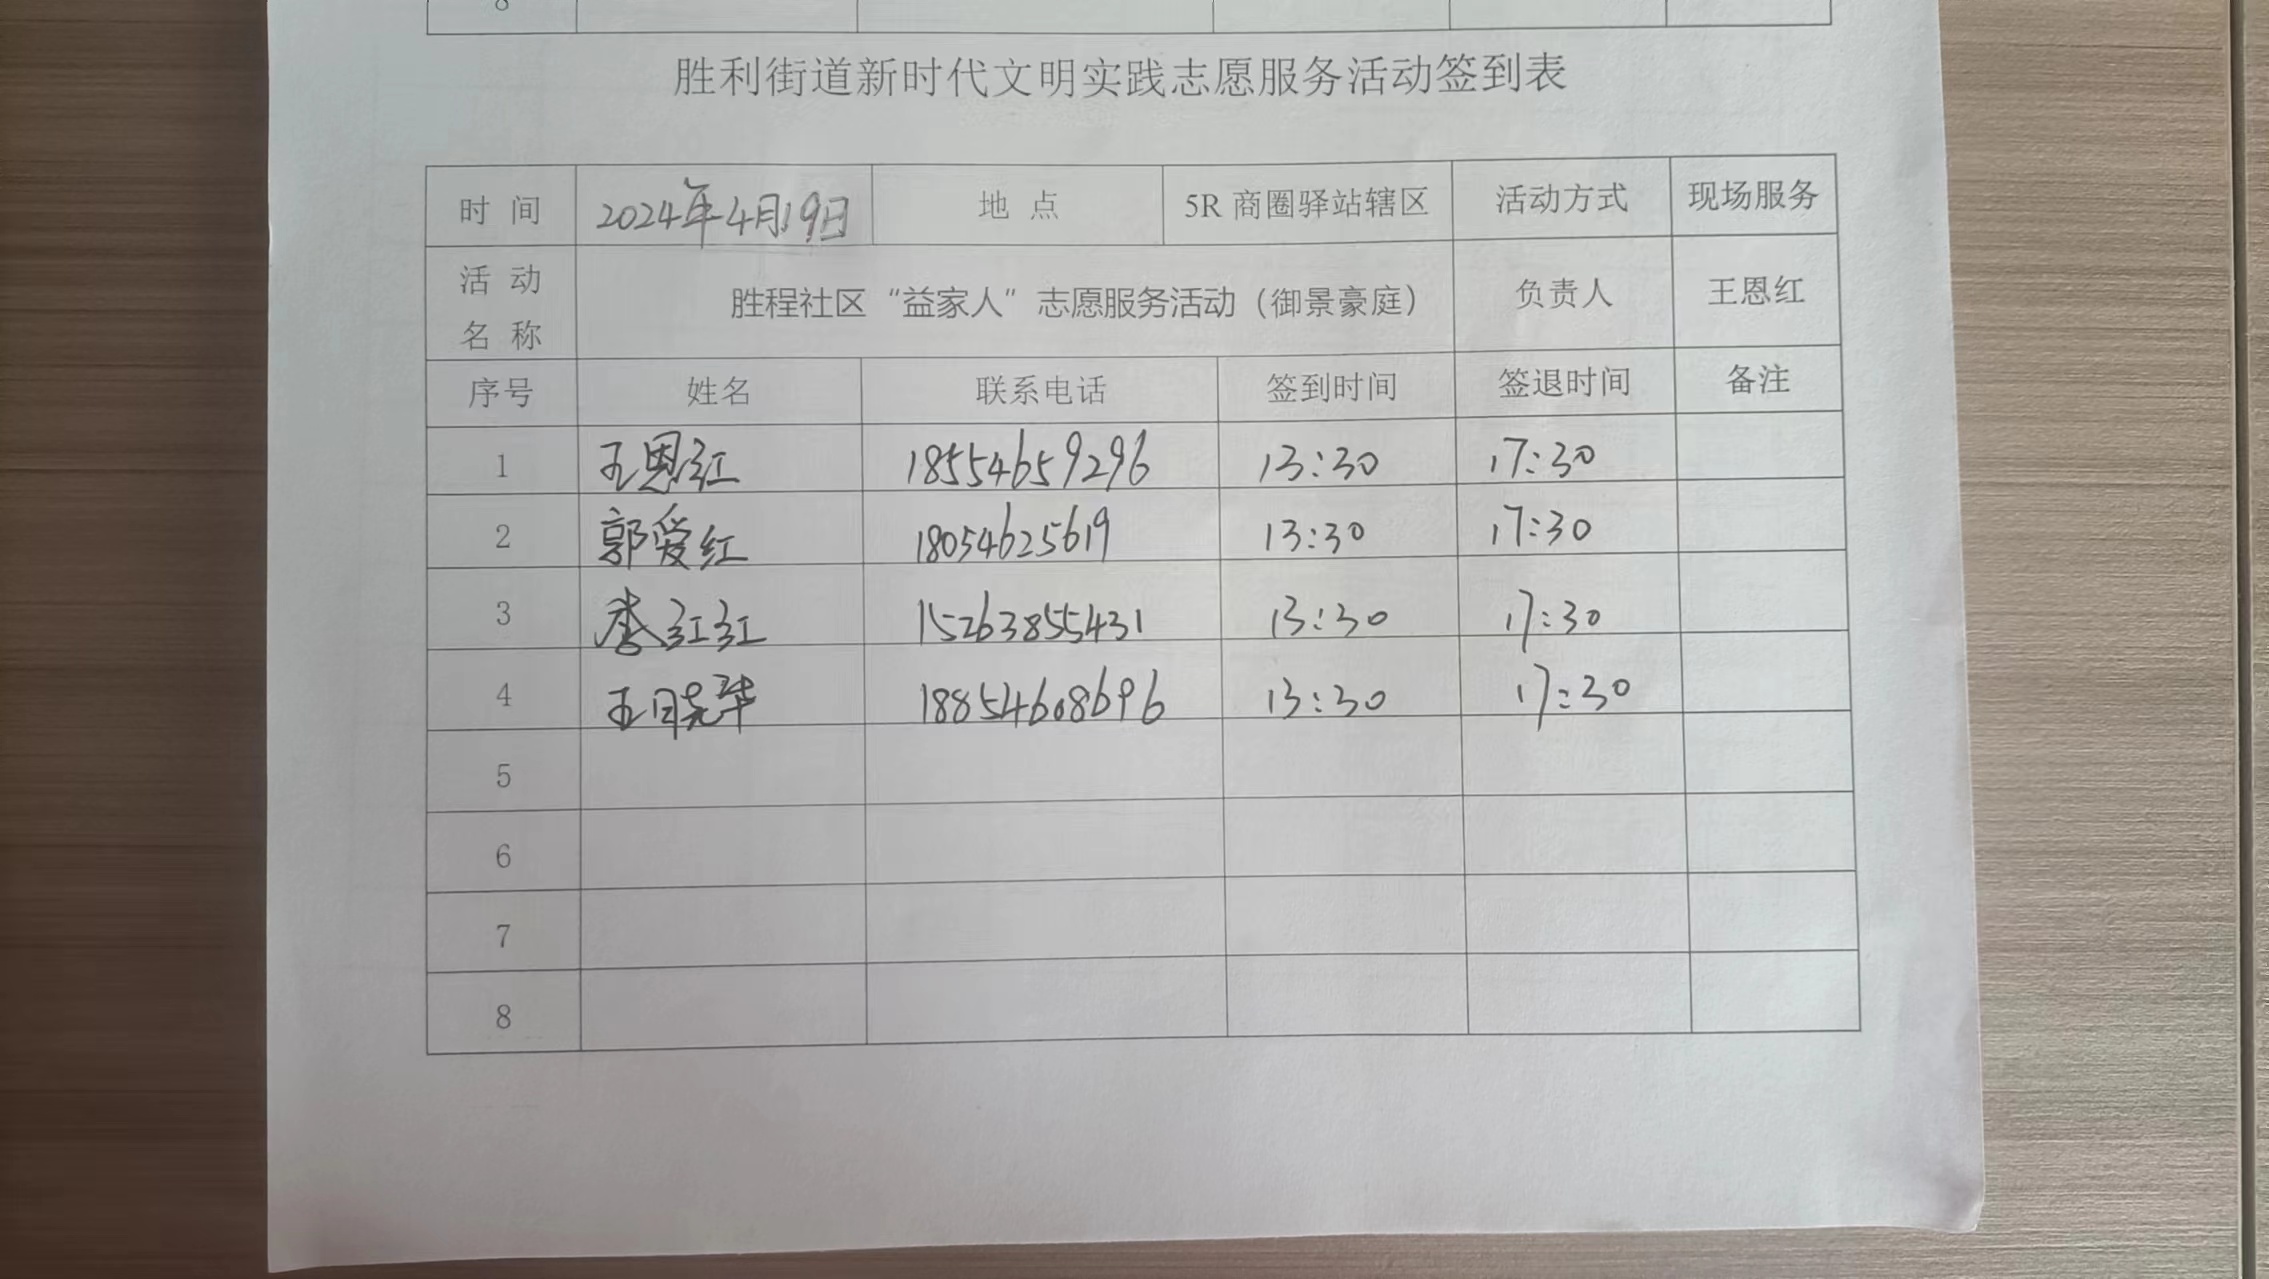 8
胜利街道新时代文明实践志愿服务活动签到表
时 间 2024年4月19日 地 点 5R 商圈驿站辖区 活动方式 现场服务
活 动
名 称 胜程社区“益家人”志愿服务活动（御景豪庭） 负责人 王恩红
序号 姓名 联系电话 签到时间 签退时间 备注
1 王恩红 18554659296 13:30 17:30
2 郭爱红 18054625619 13:30 17:30
3 李红红 15263855431 13:30 17:30
4 王晓华 18854608696 13:30 17:30
5
6
7
8